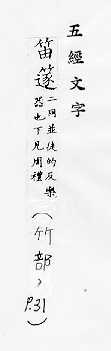 五經文字
笛篴二同並徒的反樂
器也下見周禮
(竹部,
P.31)